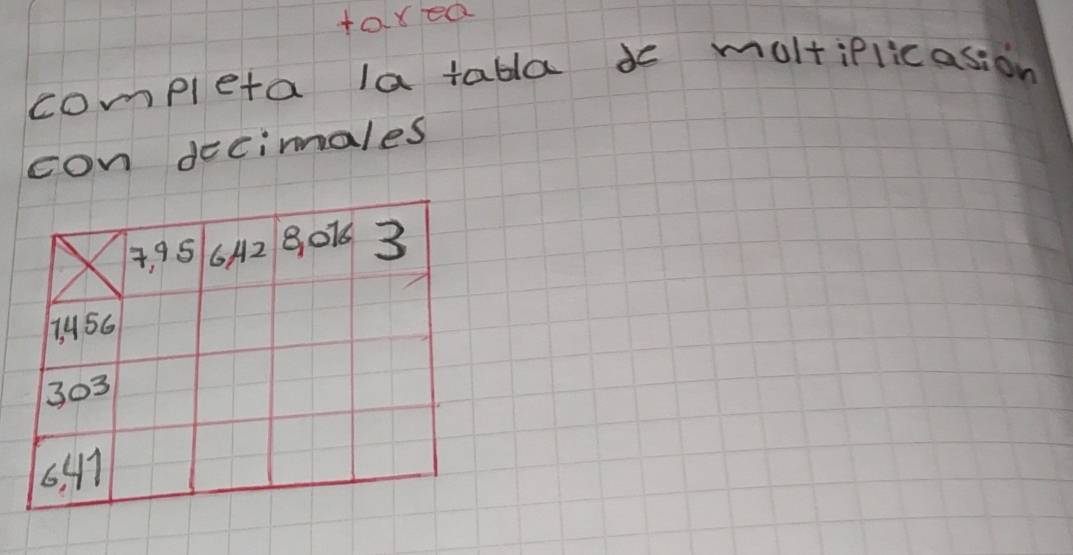 tarea
completa la tabla de moltiplicasión
con decimales
7,95 6,42 8,016 3
1,456
3,03
6,41